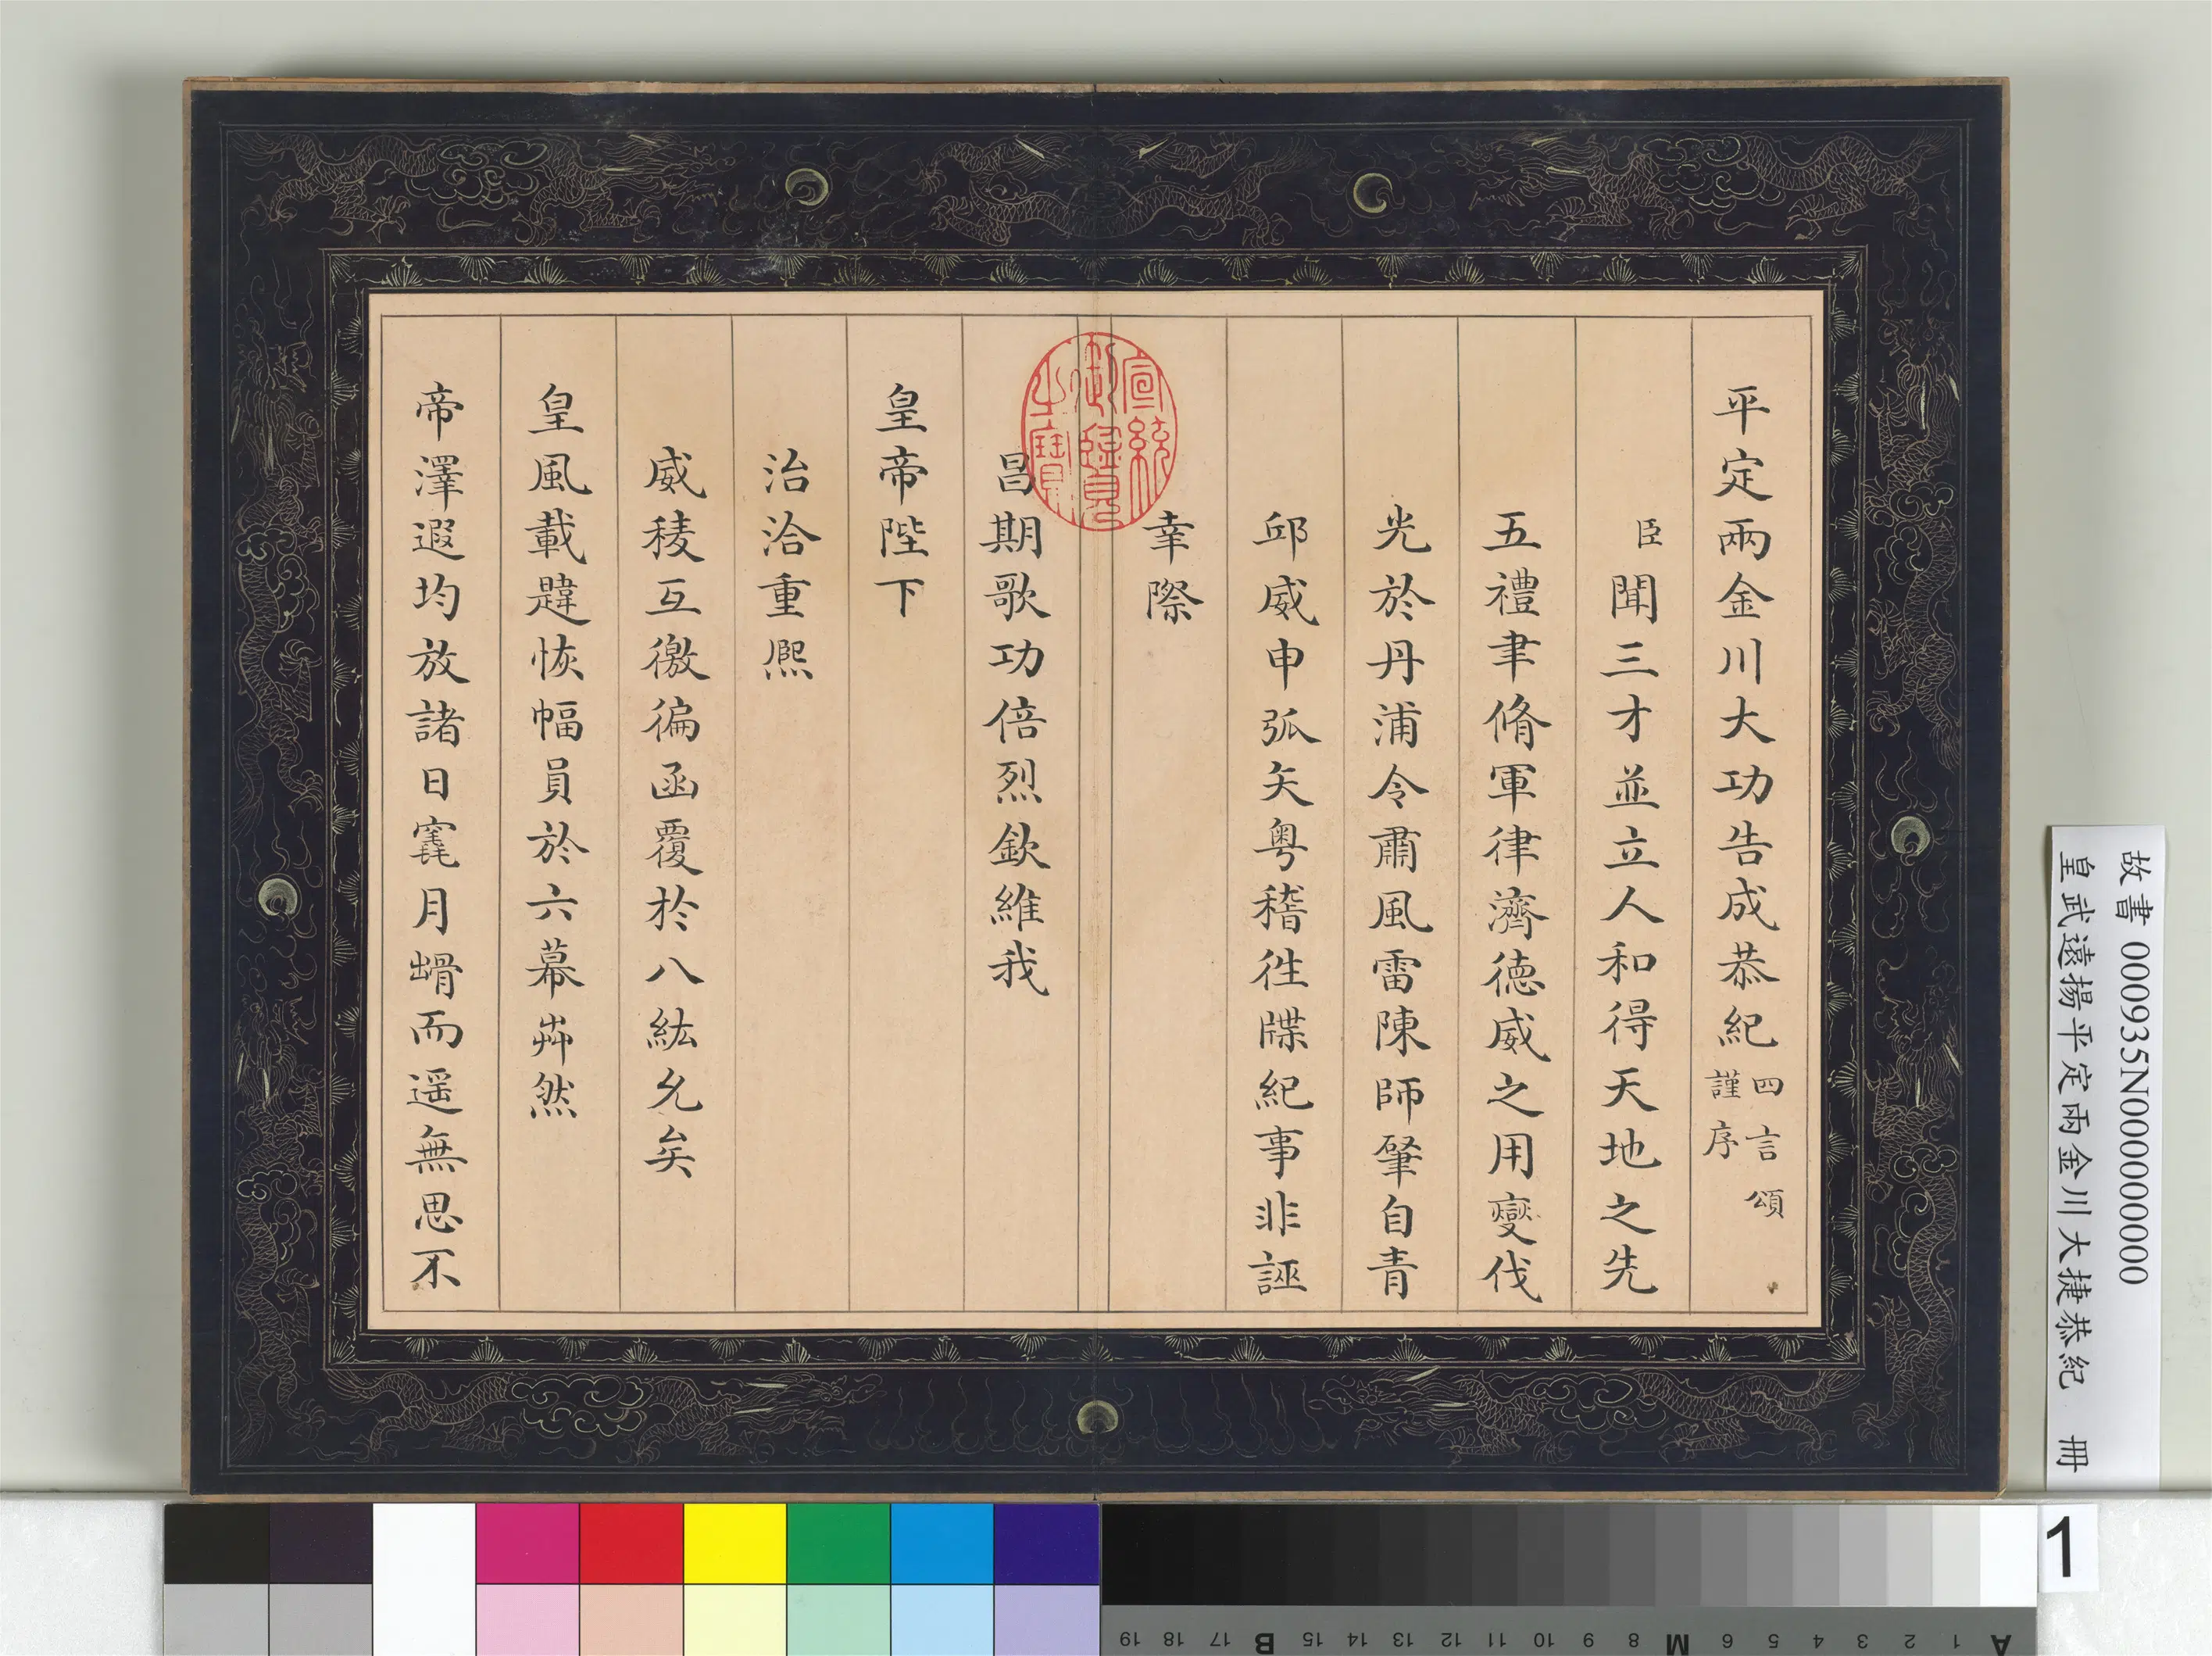 平定兩金川大功告成恭紀 四言頌 謹序
臣聞三才並立人和得天地之先
五禮聿脩軍律濟德威之用燮伐
光於丹浦令肅風雷陳師肇自青
邱威申弧矢粤稽徃牒紀事非誣
幸際
昌期歌功倍烈欽維我
皇帝陛下
治洽重熈
威稜亙徼徧函覆於八紘允矣
皇風載韙恢幅員於六幕茻然
帝澤遐均放諸日竁月而遥無思不
宣統御覽之寶
故書 000935N000000000
皇武遠揚平定兩金川大捷恭紀 冊
1
A 1 2 3 4 5 6 M 8 9 10 11 12 13 14 15 B 17 18 19